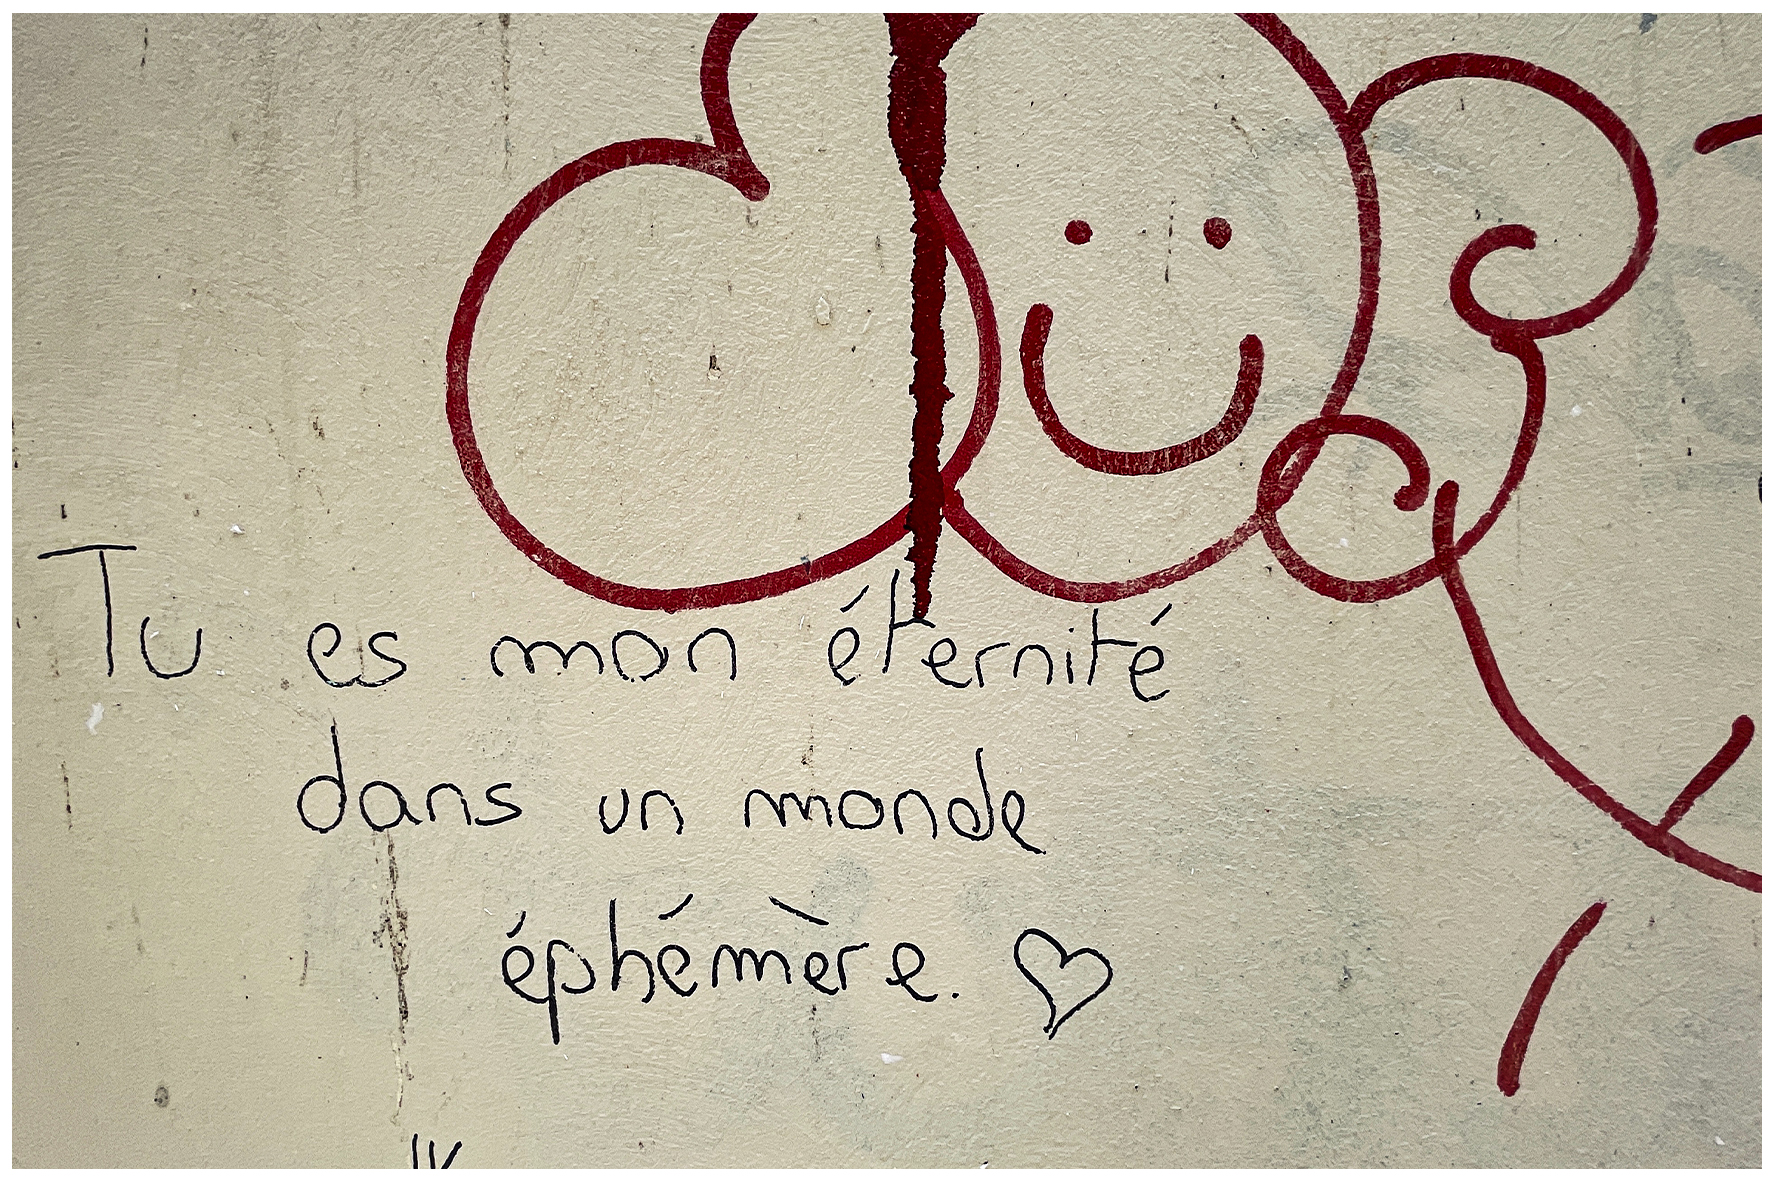 Tu es mon éternité
dans un monde
éphémère. ♡